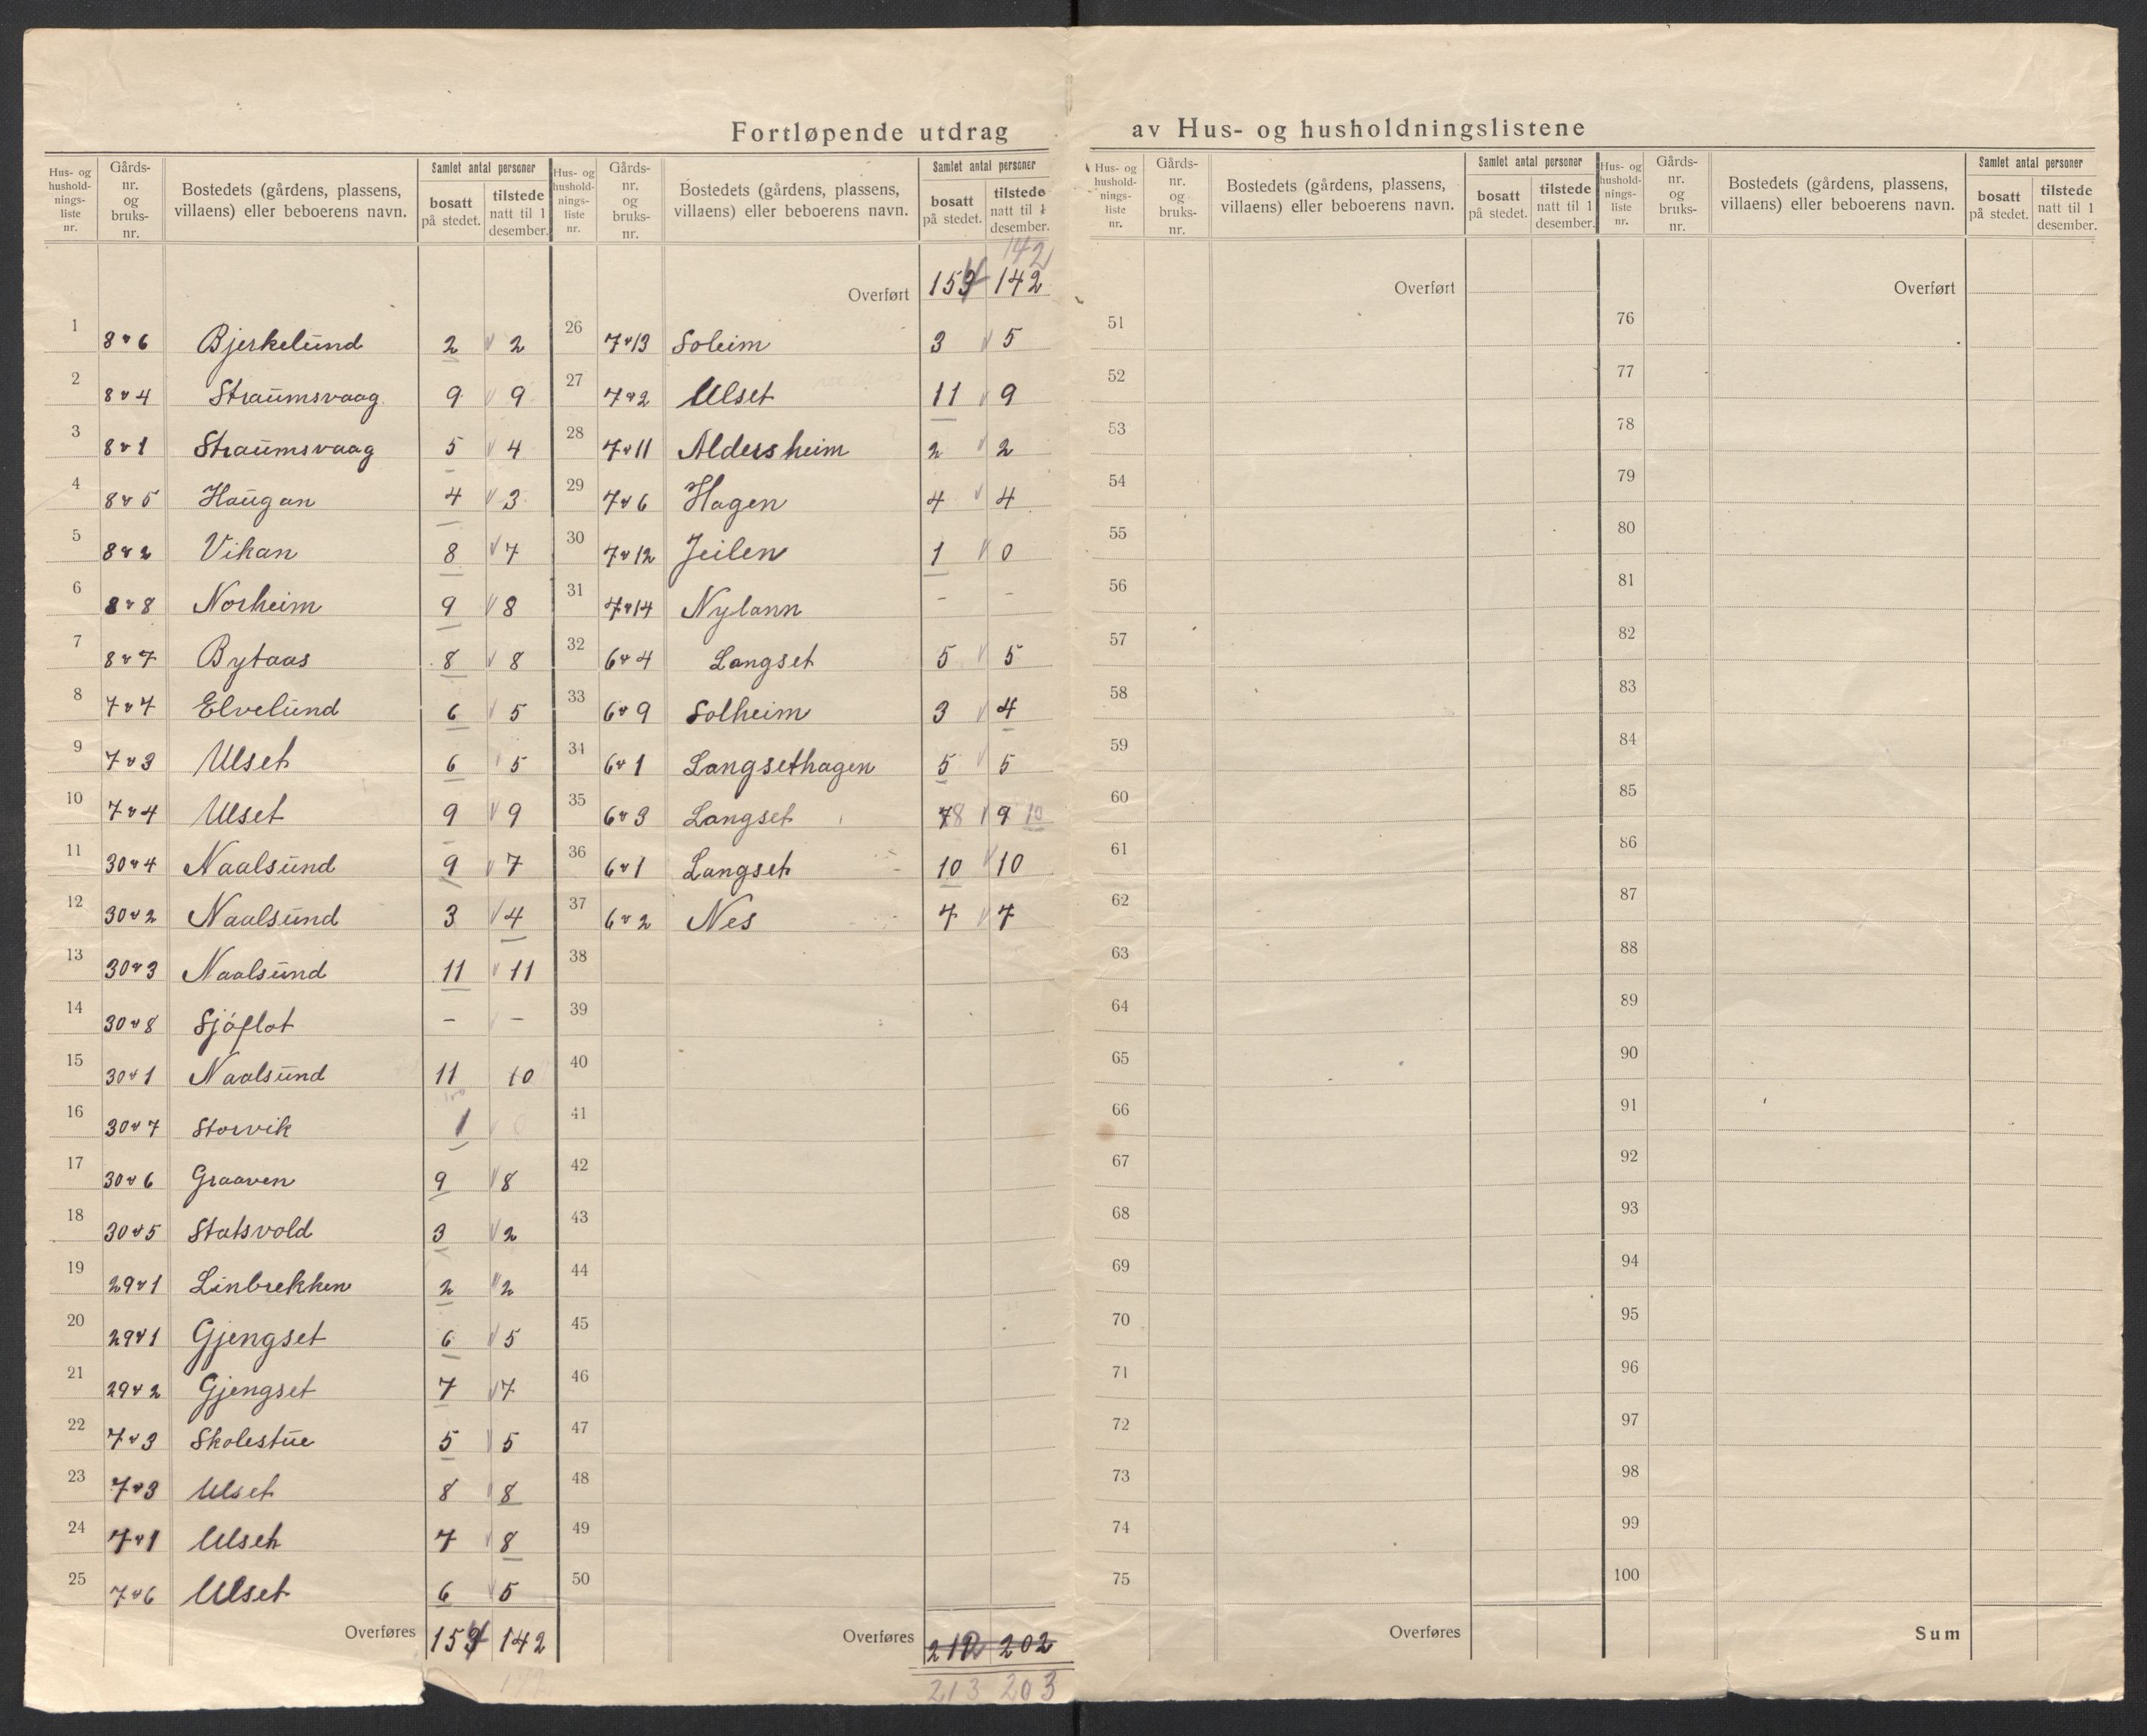 Fortløpende utdrag av Hus- og husholdningslistene
Hus- og hushold-nings-liste nr. | Gårds-nr. og bruks-nr. | Bostedets (gårdens, plassens, villaens) eller beboerens navn. | Samlet antal personer | bosatt på stedet. | tilstede natt til 1 desember.
1 8 v 6 Bjerkelund 2 v 2
2 8 v 4 Straumsvaag 9 v 9
3 8 v 1 Straumsvaag 5 v 4
4 8 v 5 Haugan 4 v 3
5 8 v 2 Vikan 8 v 7
6 8 v 8 Norheim 9 v 8
7 8 v 7 Bytaas 8 v 8
8 7 v 7 Elvelund 6 v 5
9 7 v 3 Ulset 6 v 5
10 7 v 4 Ulset 9 v 9
11 30 v 4 Naalsund 9 v 7
12 30 v 2 Naalsund 3 v 4
13 30 v 3 Naalsund 11 v 11
14 30 v 8 Sjøflot - -
15 30 v 1 Naalsund 11 10
16 30 v 7 Storvik 1 v 0
17 30 v 6 Graaven 9 v 8
18 30 v 5 Statsvold 3 v 2
19 29 v 1 Linbrekken 2 v 2
20 29 v 1 Gjengset 6 v 5
21 29 v 2 Gjengset 7 v 7
22 7 v 3 Skolestue 5 v 5
23 7 v 3 Ulset 8 v 8
24 7 v 1 Ulset 7 v 8
25 7 v 6 Ulset 6 v 5
Overføres 154 142
Hus- og hushold-nings-liste nr. | Gårds-nr. og bruks-nr. | Bostedets (gårdens, plassens, villaens) eller beboerens navn. | Samlet antal personer | bosatt på stedet. | tilstede natt til 1 desember.
142
Overført 154 142
26 7 v 13 Soleim 3 v 5
27 7 v 2 Ulset 11 v 9
28 7 v 11 Aldersheim 2 v 2
29 7 v 6 Hagen 4 v 4
30 7 v 12 Jeilen 1 v 0
31 7 v 14 Nylann - -
32 6 v 4 Langset 5 v 5
33 6 v 9 Solheim 3 v 4
34 6 v 1 Langsethagen 5 v 5
35 6 v 3 Langset 7 8 v 9 10
36 6 v 1 Langset 10 v 10
37 6 v 2 Nes 7 v 7
38
39
40
41
42
43
44
45
46
47
48
49
50
Overføres 212 202
213 203
Hus- og hushold-nings-liste nr. | Gårds-nr. og bruks-nr. | Bostedets (gårdens, plassens, villaens) eller beboerens navn. | Samlet antal personer | bosatt på stedet. | tilstede natt til 1 desember.
Overført
51
52
53
54
55
56
57
58
59
60
61
62
63
64
65
66
67
68
69
70
71
72
73
74
75
Overføres
Hus- og hushold-nings-liste nr. | Gårds-nr. og bruks-nr. | Bostedets (gårdens, plassens, villaens) eller beboerens navn. | Samlet antal personer | bosatt på stedet. | tilstede natt til 1 desember.
Overført
76
77
78
79
80
81
82
83
84
85
86
87
88
89
90
91
92
93
94
95
96
97
98
99
100
Sum